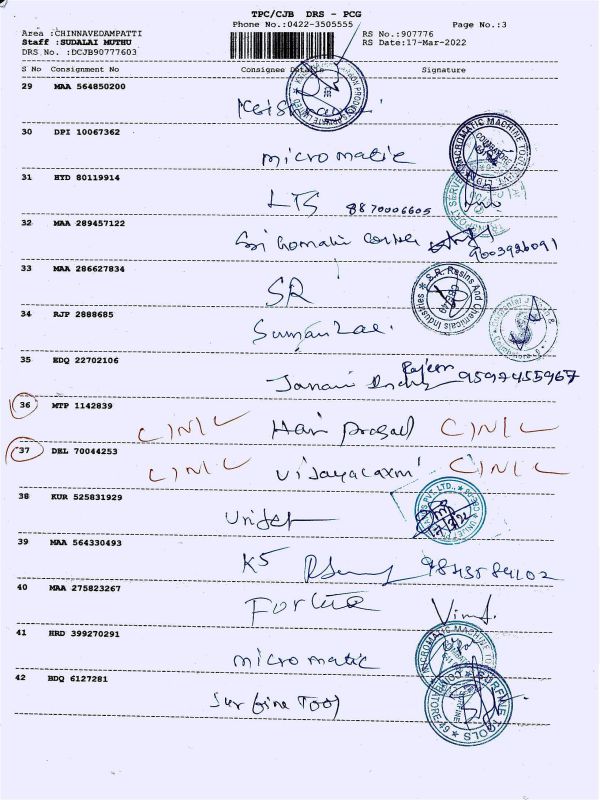 TPC/CJB DRS - PCG
Phone No.:0422-3505555 Page No.:3
Area :CHINNAVEDAMPATTI RS No.:907776
Staff :SUDALAI MUTHU RS Date:17-Mar-2022
DRS No. :DCJB90777603
S No Consignment No Consignee Details Signature
29 MAA 564850200
30 DPI 10067362
micromatic
31 HYD 80119914
LTS 8870006605
32 MAA 289457122
Sri Gomathi 9003926091
33 MAA 286627834
SR
S.R. Resins And Chemicals Industries
34 RJP 2888685
35 BDQ 22702106
Rajeen
Janani 9597455967
36 MTP 1142839
CINIC Hari Prasad CINIC
37 DEL 70044253
CINIC Vijayalaxmi CINIC
38 KUR 525831929
Unijet
39 MAA 564330493
KS 9843584102
40 MAA 275823267
Fortune
41 HRD 399270291
micromatic
42 BDQ 6127281
Surfine Tool
SURFINE TOOLS